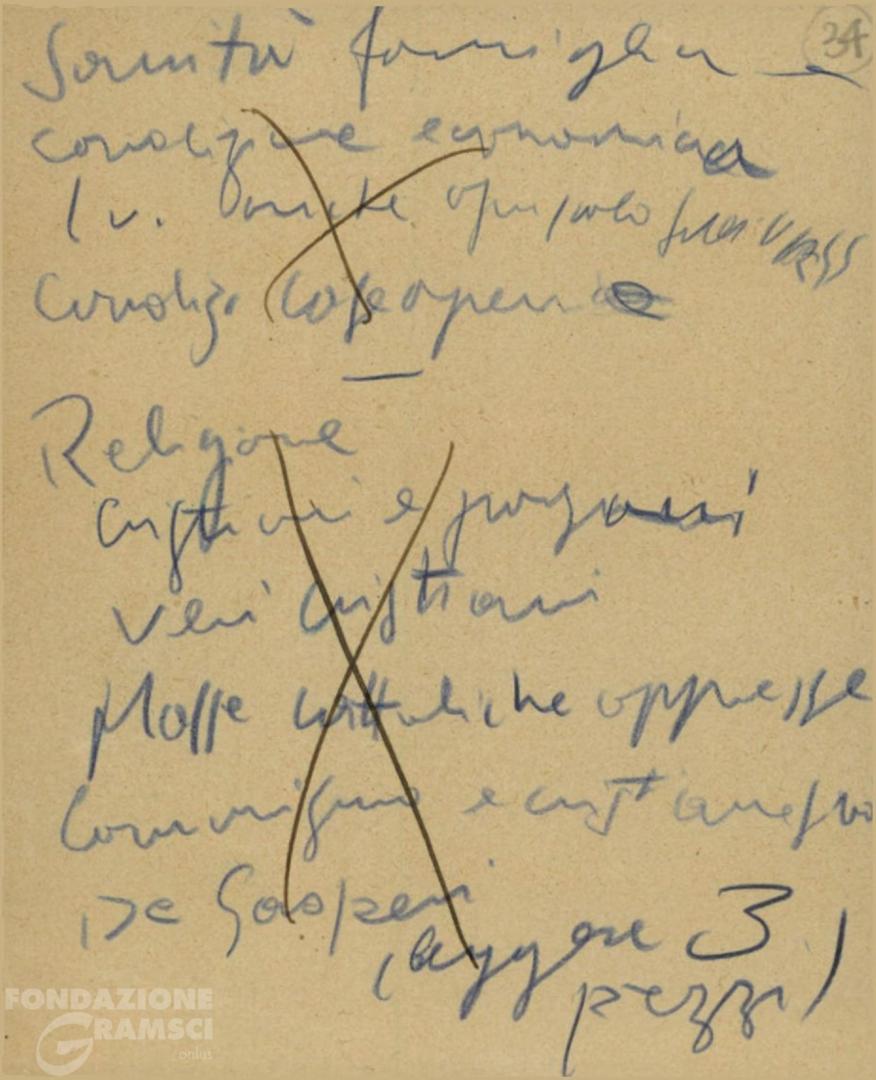 34
Sanità famiglia —
condizione economica
(v. opuscolo
Condiz. case operaie
—
Religione
Cristiani e pagani
veri cristiani
Masse cattoliche oppresse
Comunismo e cristianesimo
De Gasperi
(leggere 3
pezzi)
FONDAZIONE
GRAMSCI
onlus